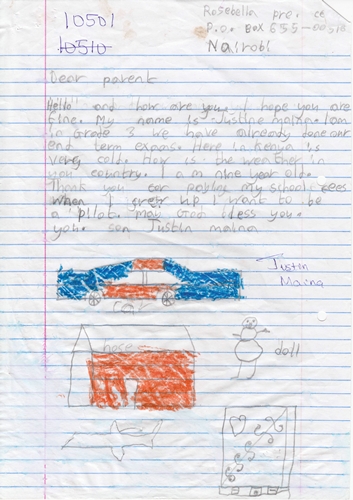 10501
10510
Rosebella pre.
P.o. Box 655-
Nairobi
Dear parent
Hello and how are you. I hope you are
fine. My name is Justine maina. Iam
in Grade 3 we have already done our
end term exams. Here in Kenya is
very cold. How is the weather in
your country. I am nine year old.
Thank you for paying my school fees
When I grew up I want to be
a pilot. may God bless you.
your son Justin maina
Justin
Maina
car
hose
doll